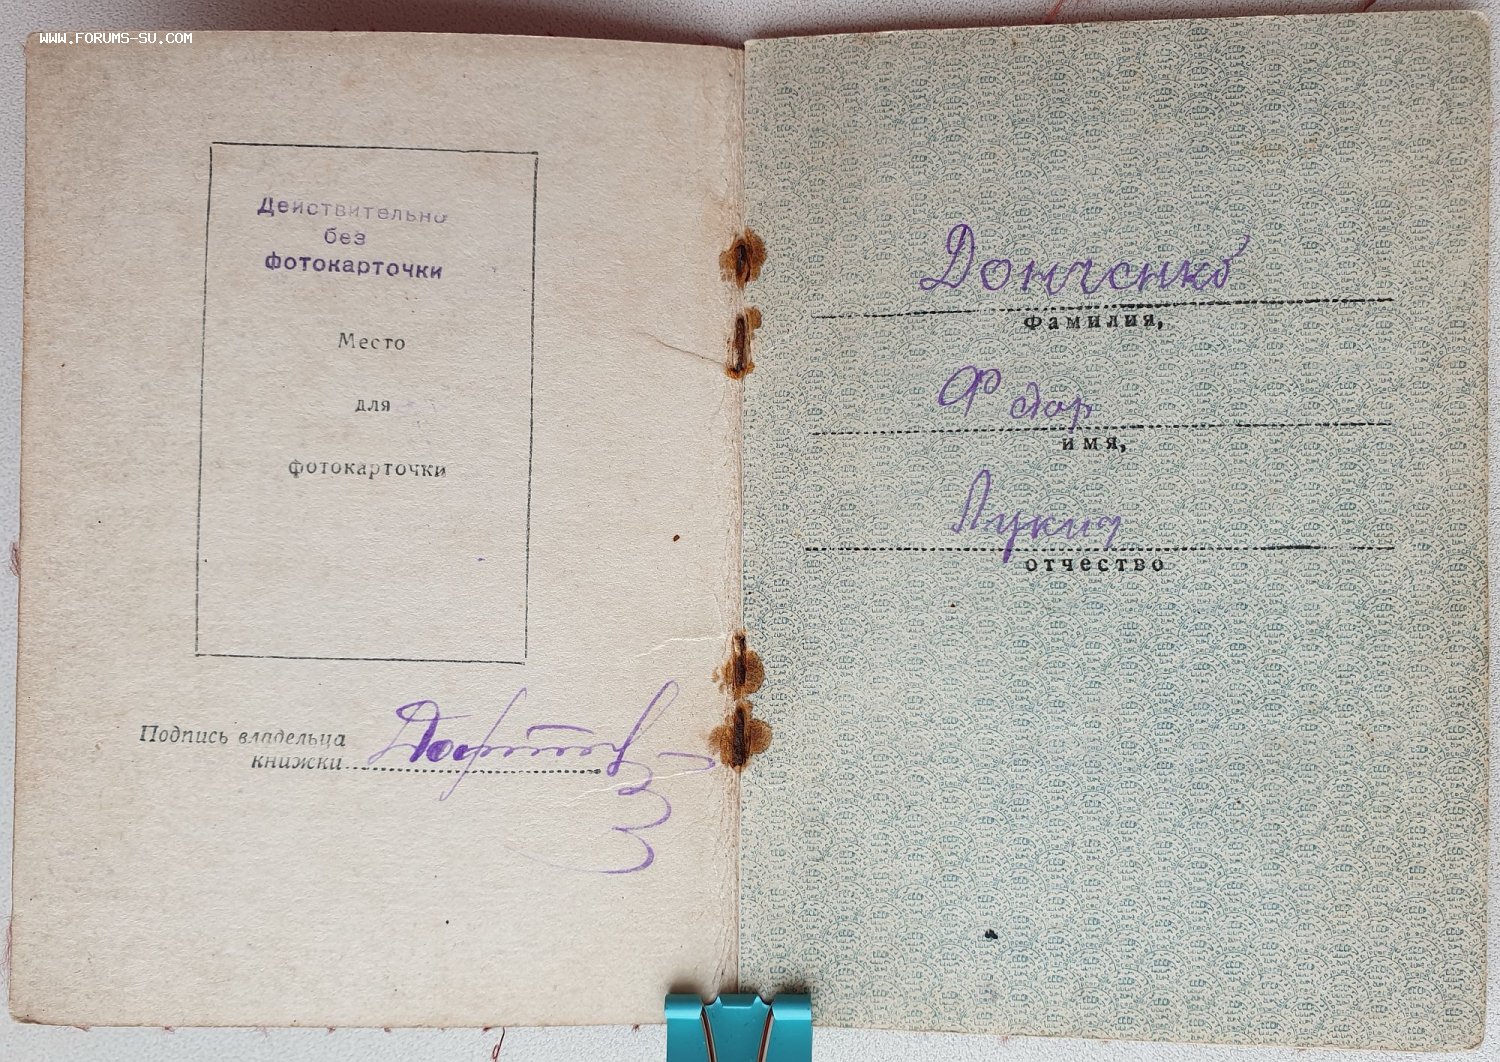 WWW.FORUMS-SU.COM
Действительно
без
фотокарточки
Место
для
фотокарточки
Подпись владельца
книжки
Донченко
Фамилия,
Федор
имя,
Лукич
отчество